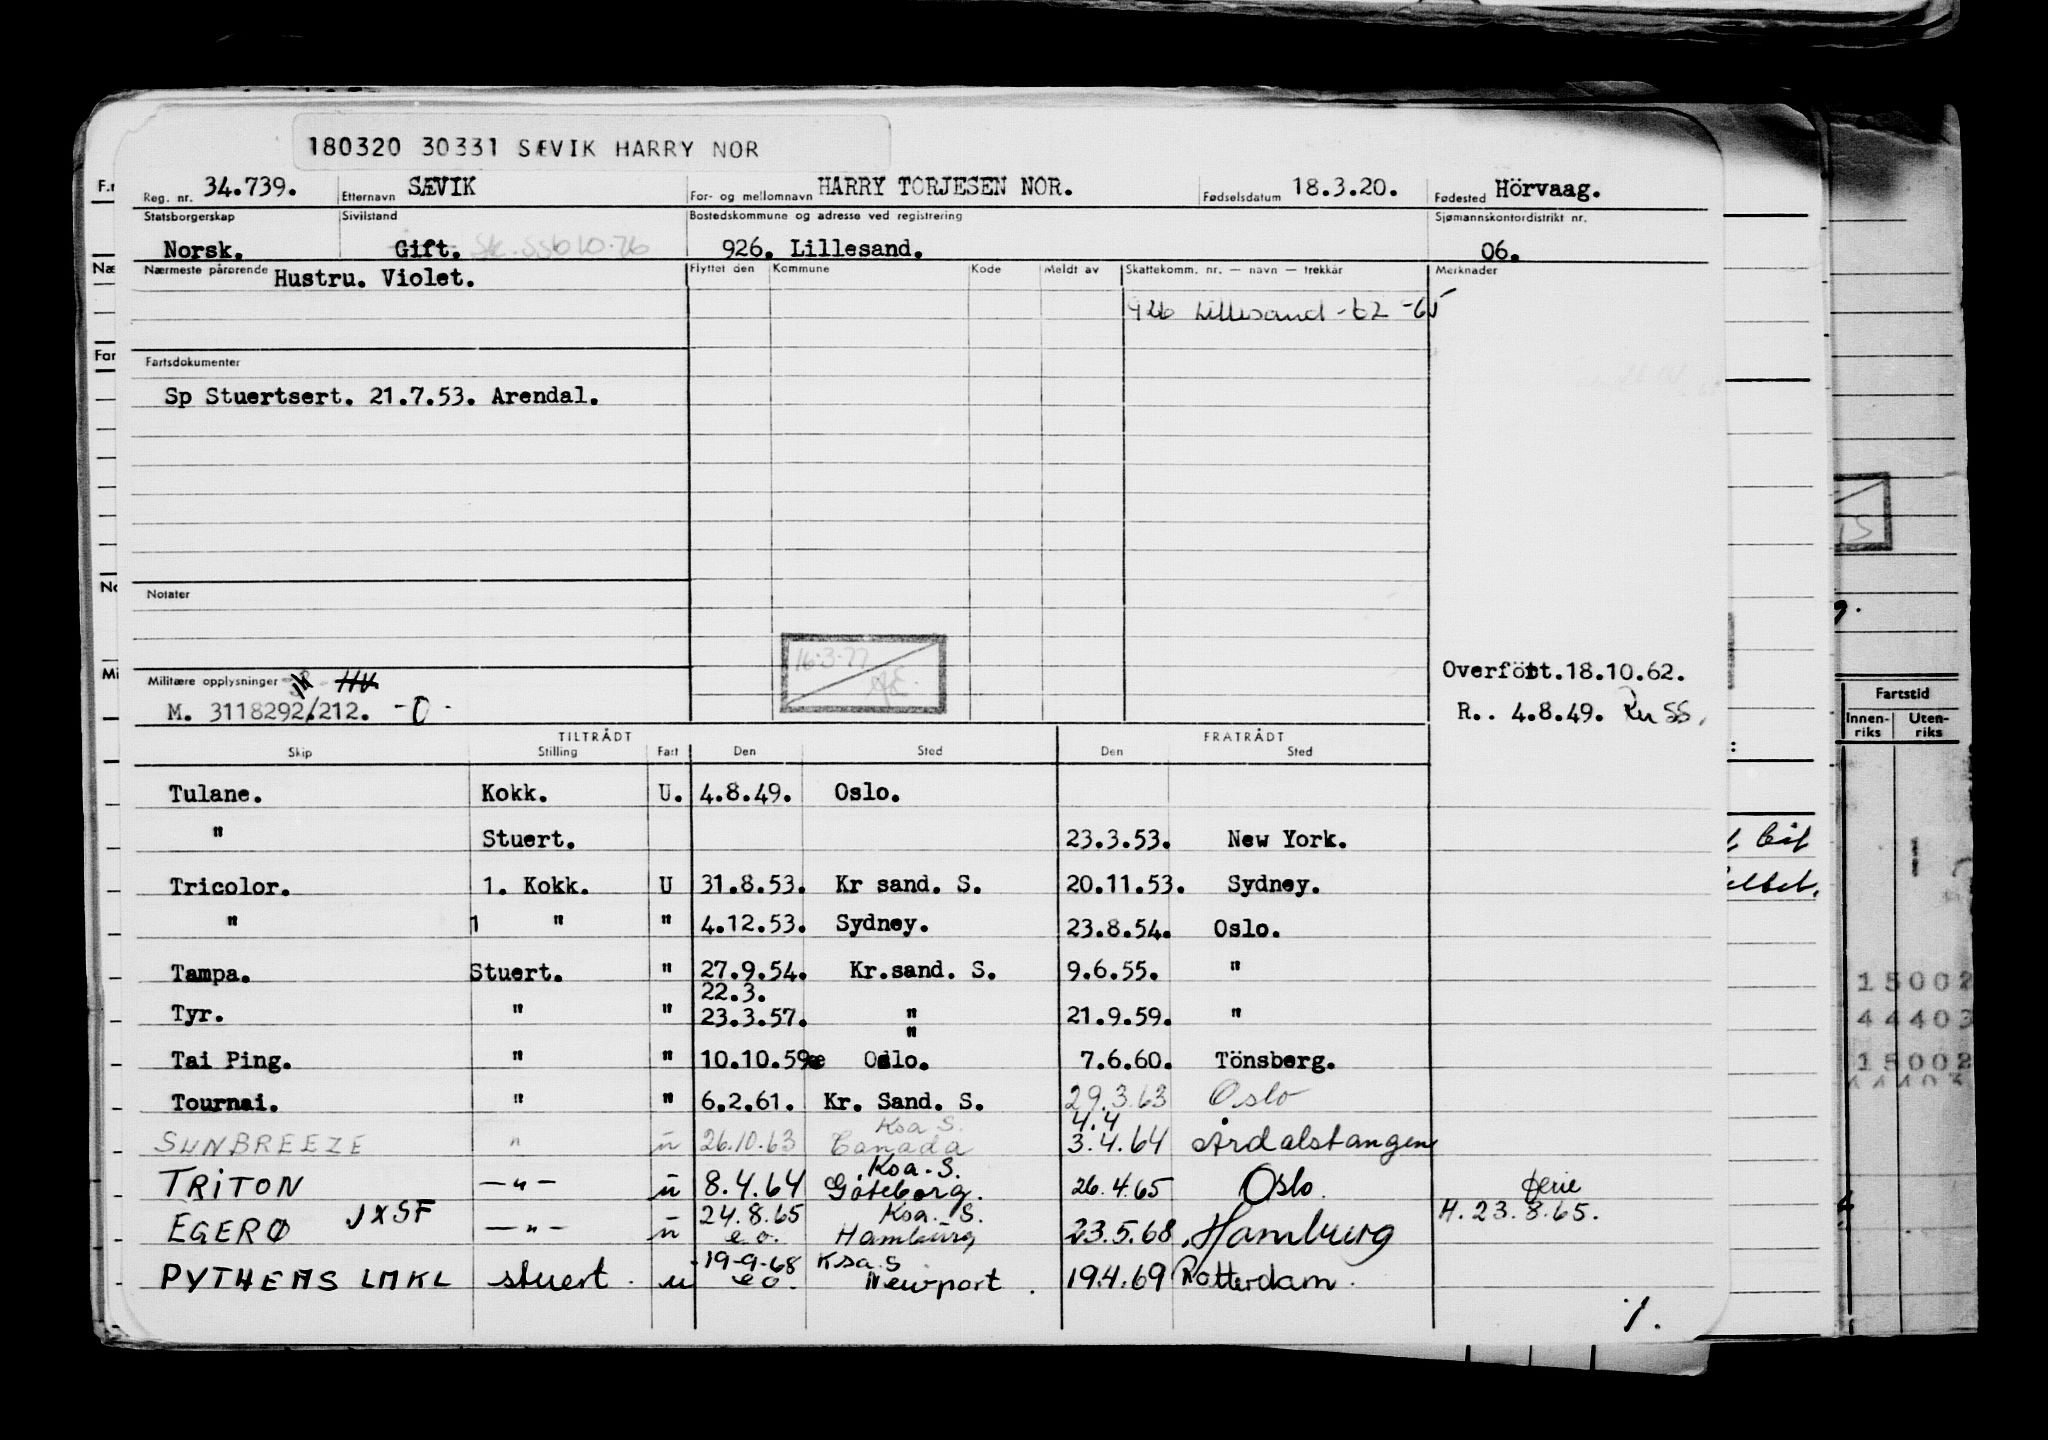 180320 30331 SÆVIK HARRY NOR
Reg. nr. 34.739. Etternavn SÆVIK For- og mellomnavn HARRY TORJESEN NOR. Fødselsdatum 18.3.20. Fødested Hörvaag.
Statsborgerskap Sivilstand Bostedskommune og adresse ved registrering Sjømannskontordistrikt nr.
Norsk. Gift. 926. Lillesand. 06.
Nærmeste pårørende Hustru. Violet. Flyttet den Kommune Kode Meldt av Skattekomm. nr. — navn — trekkår Merknader
926 Lillesand -62 -65
Fartsdokumenter
Sp Stuertsert. 21.7.53. Arendal.
Notater
16.3.77
Overfört.18.10.62.
Militære opplysninger HV
M. 3118292/212. -0- R.. 4.8.49.
TILTRÅDT FRATRÅDT
Skip Stilling Fart Den Sted Den Sted
Tulane. Kokk. U. 4.8.49. Oslo.
" Stuert. 23.3.53. New York.
Tricolor. 1. Kokk. U 31.8.53. Kr sand. S. 20.11.53. Sydney.
" 1 " " 4.12.53. Sydney. 23.8.54. Oslo.
Tampa. Stuert. " 27.9.54. Kr.sand. S. 9.6.55. "
22.3.
Tyr. " " 23.3.57. " 21.9.59. "
"
Tai Ping. " " 10.10.59 Oslo. 7.6.60. Tönsberg.
Tournai. " " 6.2.61. Kr. Sand. S. 29.3.63 Oslo
Ksa S. 4.4
SUNBREEZE " u 26.10.63 Canada 3.4.64 Årdalstangen
Ksa. S.
TRITON —"— u 8.4.64 Göteborg. 26.4.65 Oslo. ferie
JXSF 24.8.65 Ksa. S. H. 23.8.65.
EGERØ —"— u e.o. Hamburg 23.5.68 Hamburg
19-9-68 Ksa. S
PYTHEAS LMKL stuert. u eo. Newport. 19.4.69 Rotterdam.
1.
Fartstid
Innen- Uten-
riks riks
15002
44403
15002